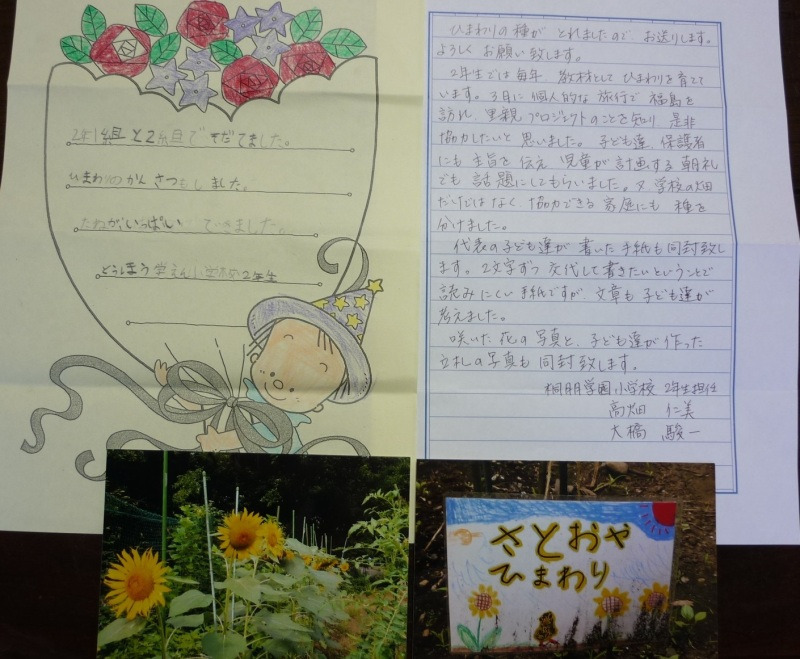 2年1組と2組でそだてました。
ひまわりのかんさつもしました。
たねがいっぱいできました。
とうほう学えん小学校2年生
ひまわりの種が とれましたので お送りします。
よろしく お願い致します。
2年生では毎年 教材として ひまわりを育て
ています。3月に 個人的な旅行で 福島を
訪れ 里親プロジェクトのことを知り 是非
協力したいと 思いました。子ども達、保護者
にも 主旨を伝え 児童が計画する 朝礼
でも 話題にしてもらいました。又 学校の畑
だけではなく、協力できる 家庭にも 種を
分けました。
代表の子ども達が 書いた手紙も同封致し
ます。2文字ずつ 交代して書きたいということで
読みにくい 手紙ですが、文章も 子ども達が
考えました。
咲いた 花の写真と、子ども達が 作った
立札の写真も 同封致します。
桐朋学園小学校 2年生担任
高畑 仁美
大橋 駿一
さとおや
ひまわり